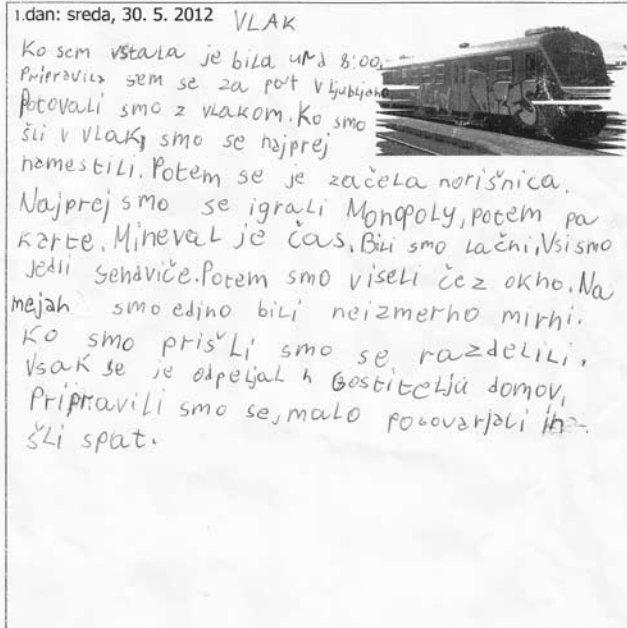 1.dan: sreda, 30. 5. 2012 VLAK
Ko sem vstala je bila ura 8:00.
Pripravila sem se za pot v Ljubljano
Potovali smo z vlakom. Ko smo
šli v vlak, smo se najprej
namestili. Potem se je začela norišnica.
Najprej smo se igrali Monopoly, potem pa
karte. Mineval je čas. Bili smo lačni, Vsi smo
jedli sendviče. Potem smo viseli čez okno. Na
mejah smo edino bili neizmerno mirni.
Ko smo prišli smo se razdelili.
Vsak se je odpeljal h Gostitelju domov,
Pripravili smo se, malo pogovarjali in
šli spat.